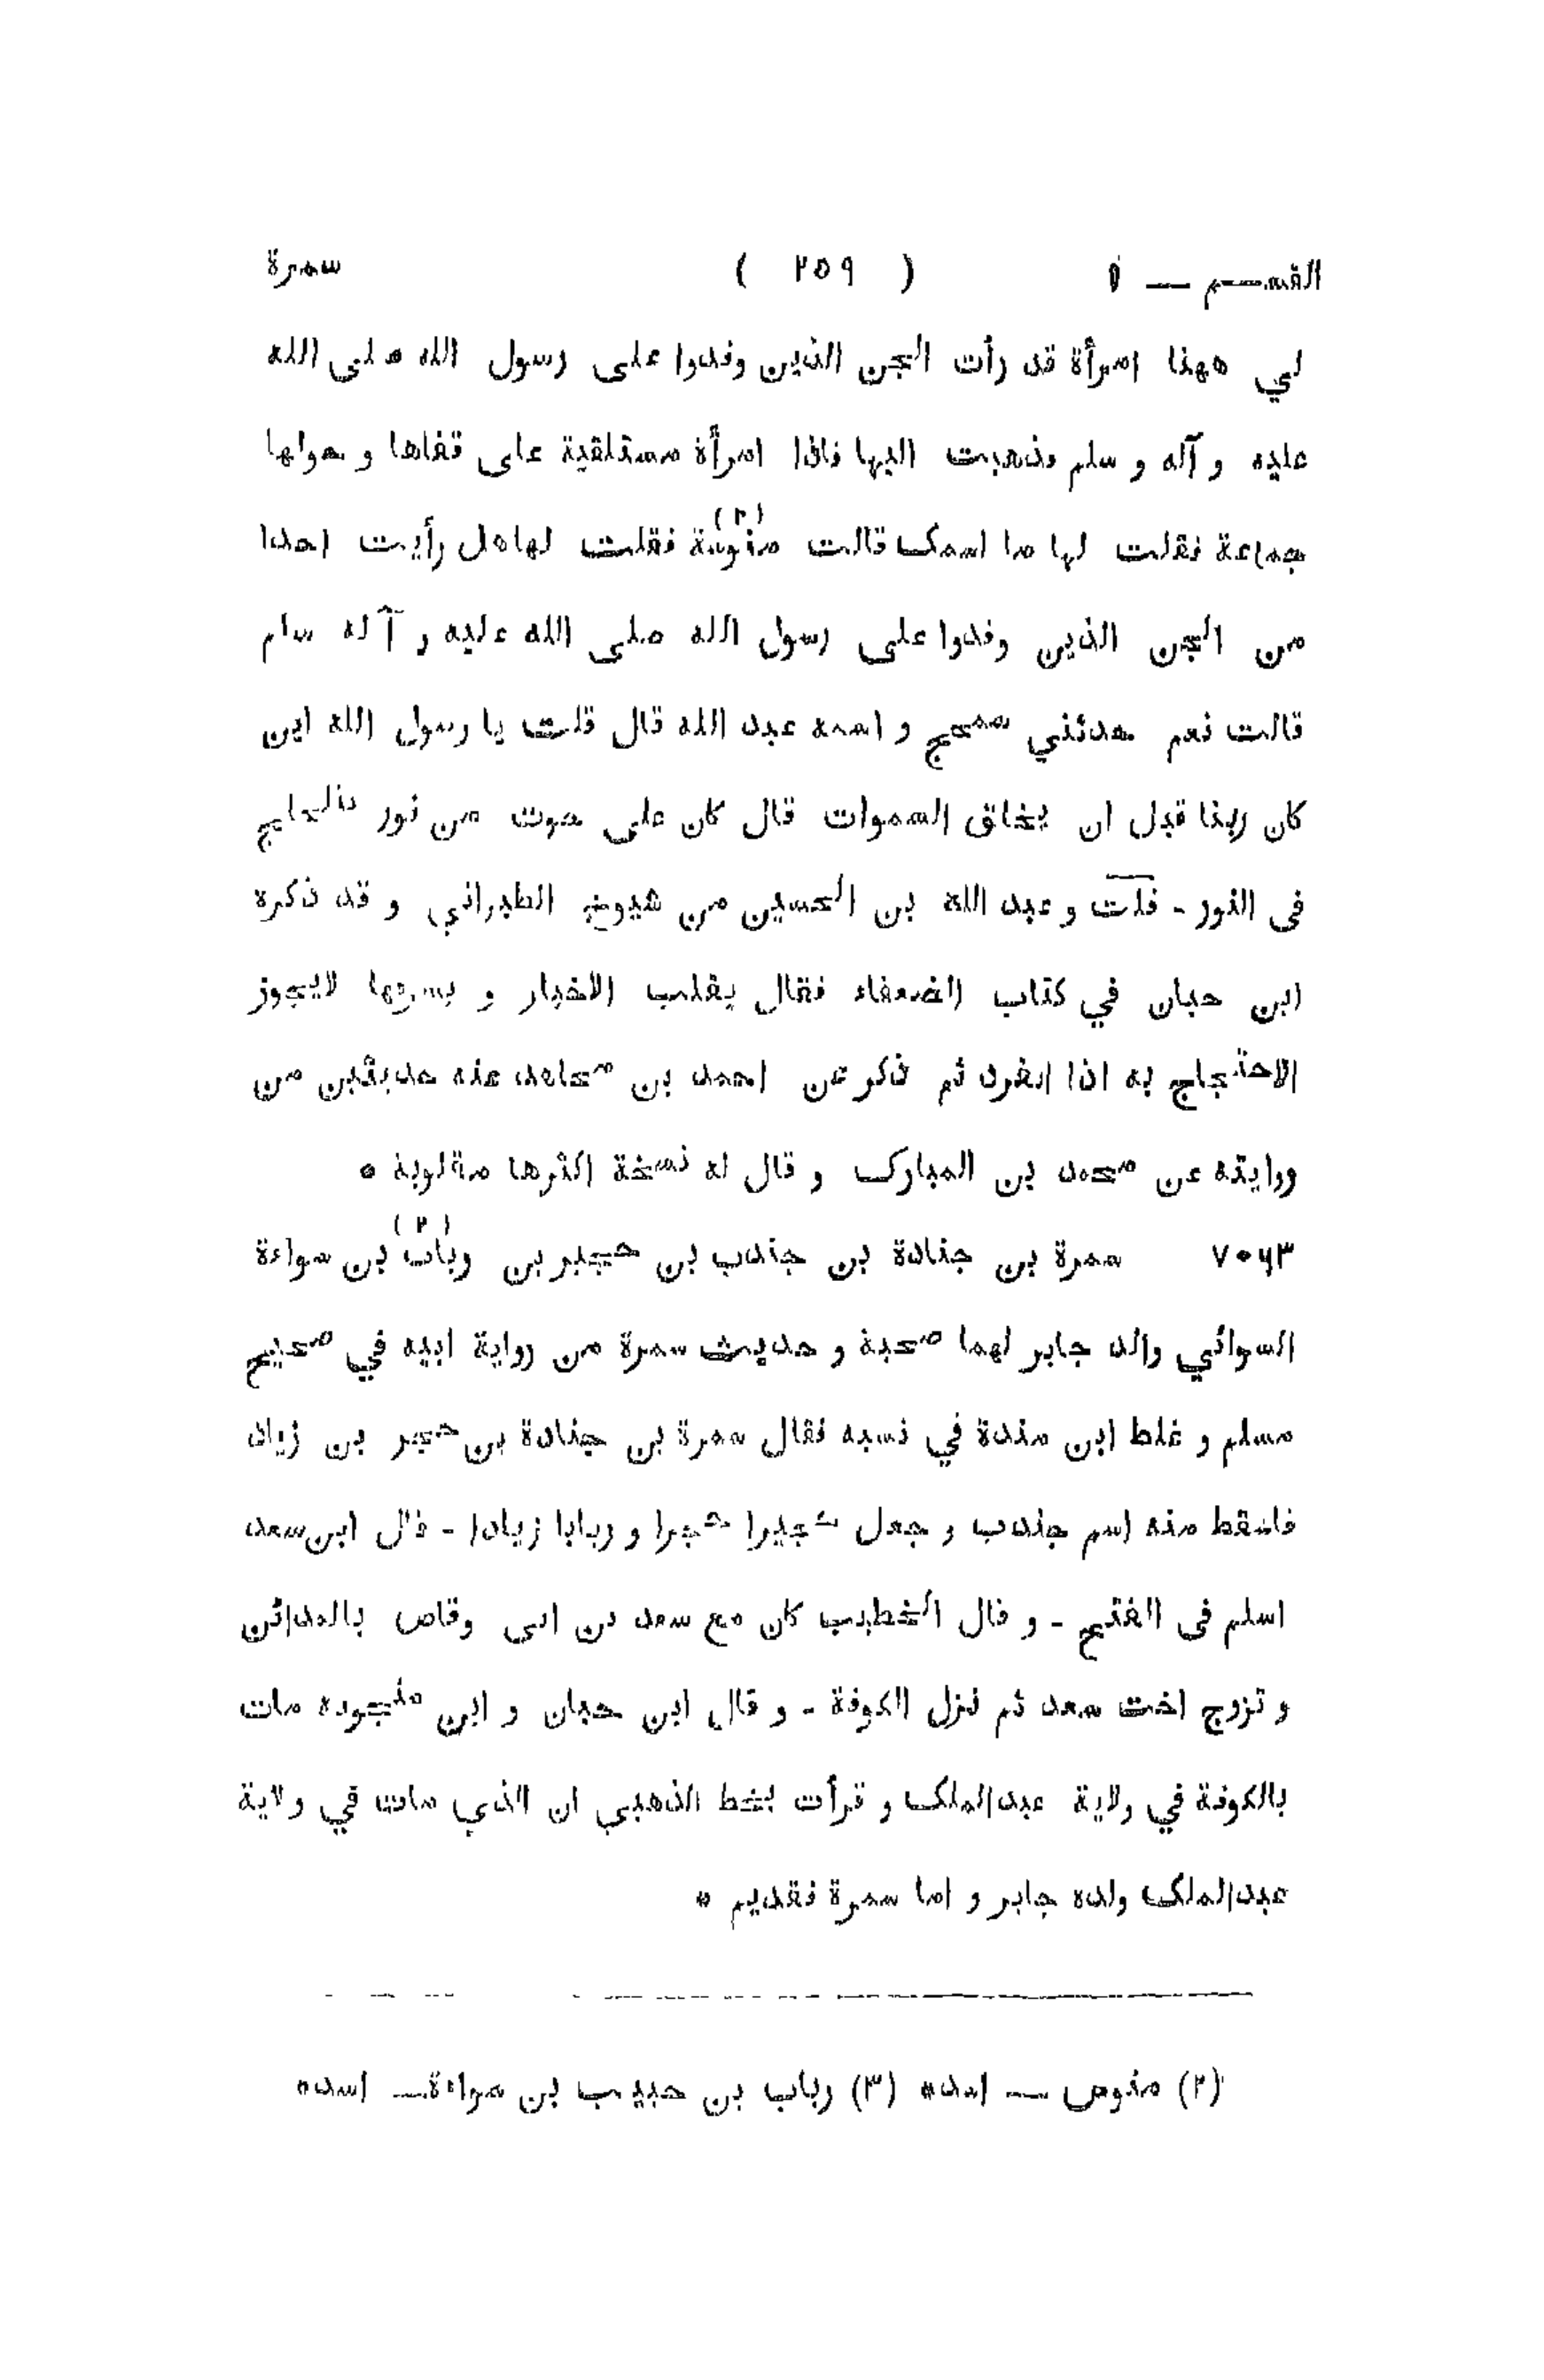 القسم — ١ ( ٢٥٩ ) سمرة
لي ههنا امرأة قد رأت الجن الذين وفدوا على رسول الله صلى الله
عليه و آله و سلم فذهبت اليها فاذا امرأة مستلقية على قفاها و حولها
جماعة فقلت لها ما اسمک قالت منوسة (٢) فقلت لها هل رأيت احدا
من الجن الذين وفدوا على رسول الله صلى الله عليه و آله سلم
قالت نعم حدثني سمحج و اسمه عبد الله قال قلت يا رسول الله اين
كان ربنا قبل ان يخلق السموات قال كان على حوت من نور يتلجلج
فى النور - قلت و عبد الله بن الحسين من شيوخ الطبراني و قد ذكره
ابن حبان في كتاب الضعفاء فقال يقلب الاخبار و يسرقها لايجوز
الاحتجاج به اذا انفرد ثم ذكر عن احمد بن مجاهد عنه حديثين من
روايته عن محمد بن المبارک و قال له نسخة اكثرها مقلوبة *
٧٠٦٣ سمرة بن جنادة بن جندب بن حجير بن رباب (٣) بن سواءة
السوائي والد جابر لهما صحبة و حديث سمرة من رواية ابيه في صحيح
مسلم و غلط ابن مندة في نسبه فقال سمرة بن جنادة بن حجر بن زياد
فاسقط منه اسم جندب و جعل حجيرا حجرا و ربابا زيادا - قال ابن سعد
اسلم فى الفتح - و قال الخطيب كان مع سعد بن ابى وقاص بالمدائن
و تزوج اخت سعد ثم نزل الكوفة - و قال ابن حبان و ابن منجويه مات
بالكوفة في ولاية عبدالملک و قرأت بخط الذهبي ان الذي مات في ولاية
عبدالملک ولده جابر و اما سمرة فقديم *
(٢) منوص — اسد* (٣) رباب بن حبيب بن سواءة— اسد*